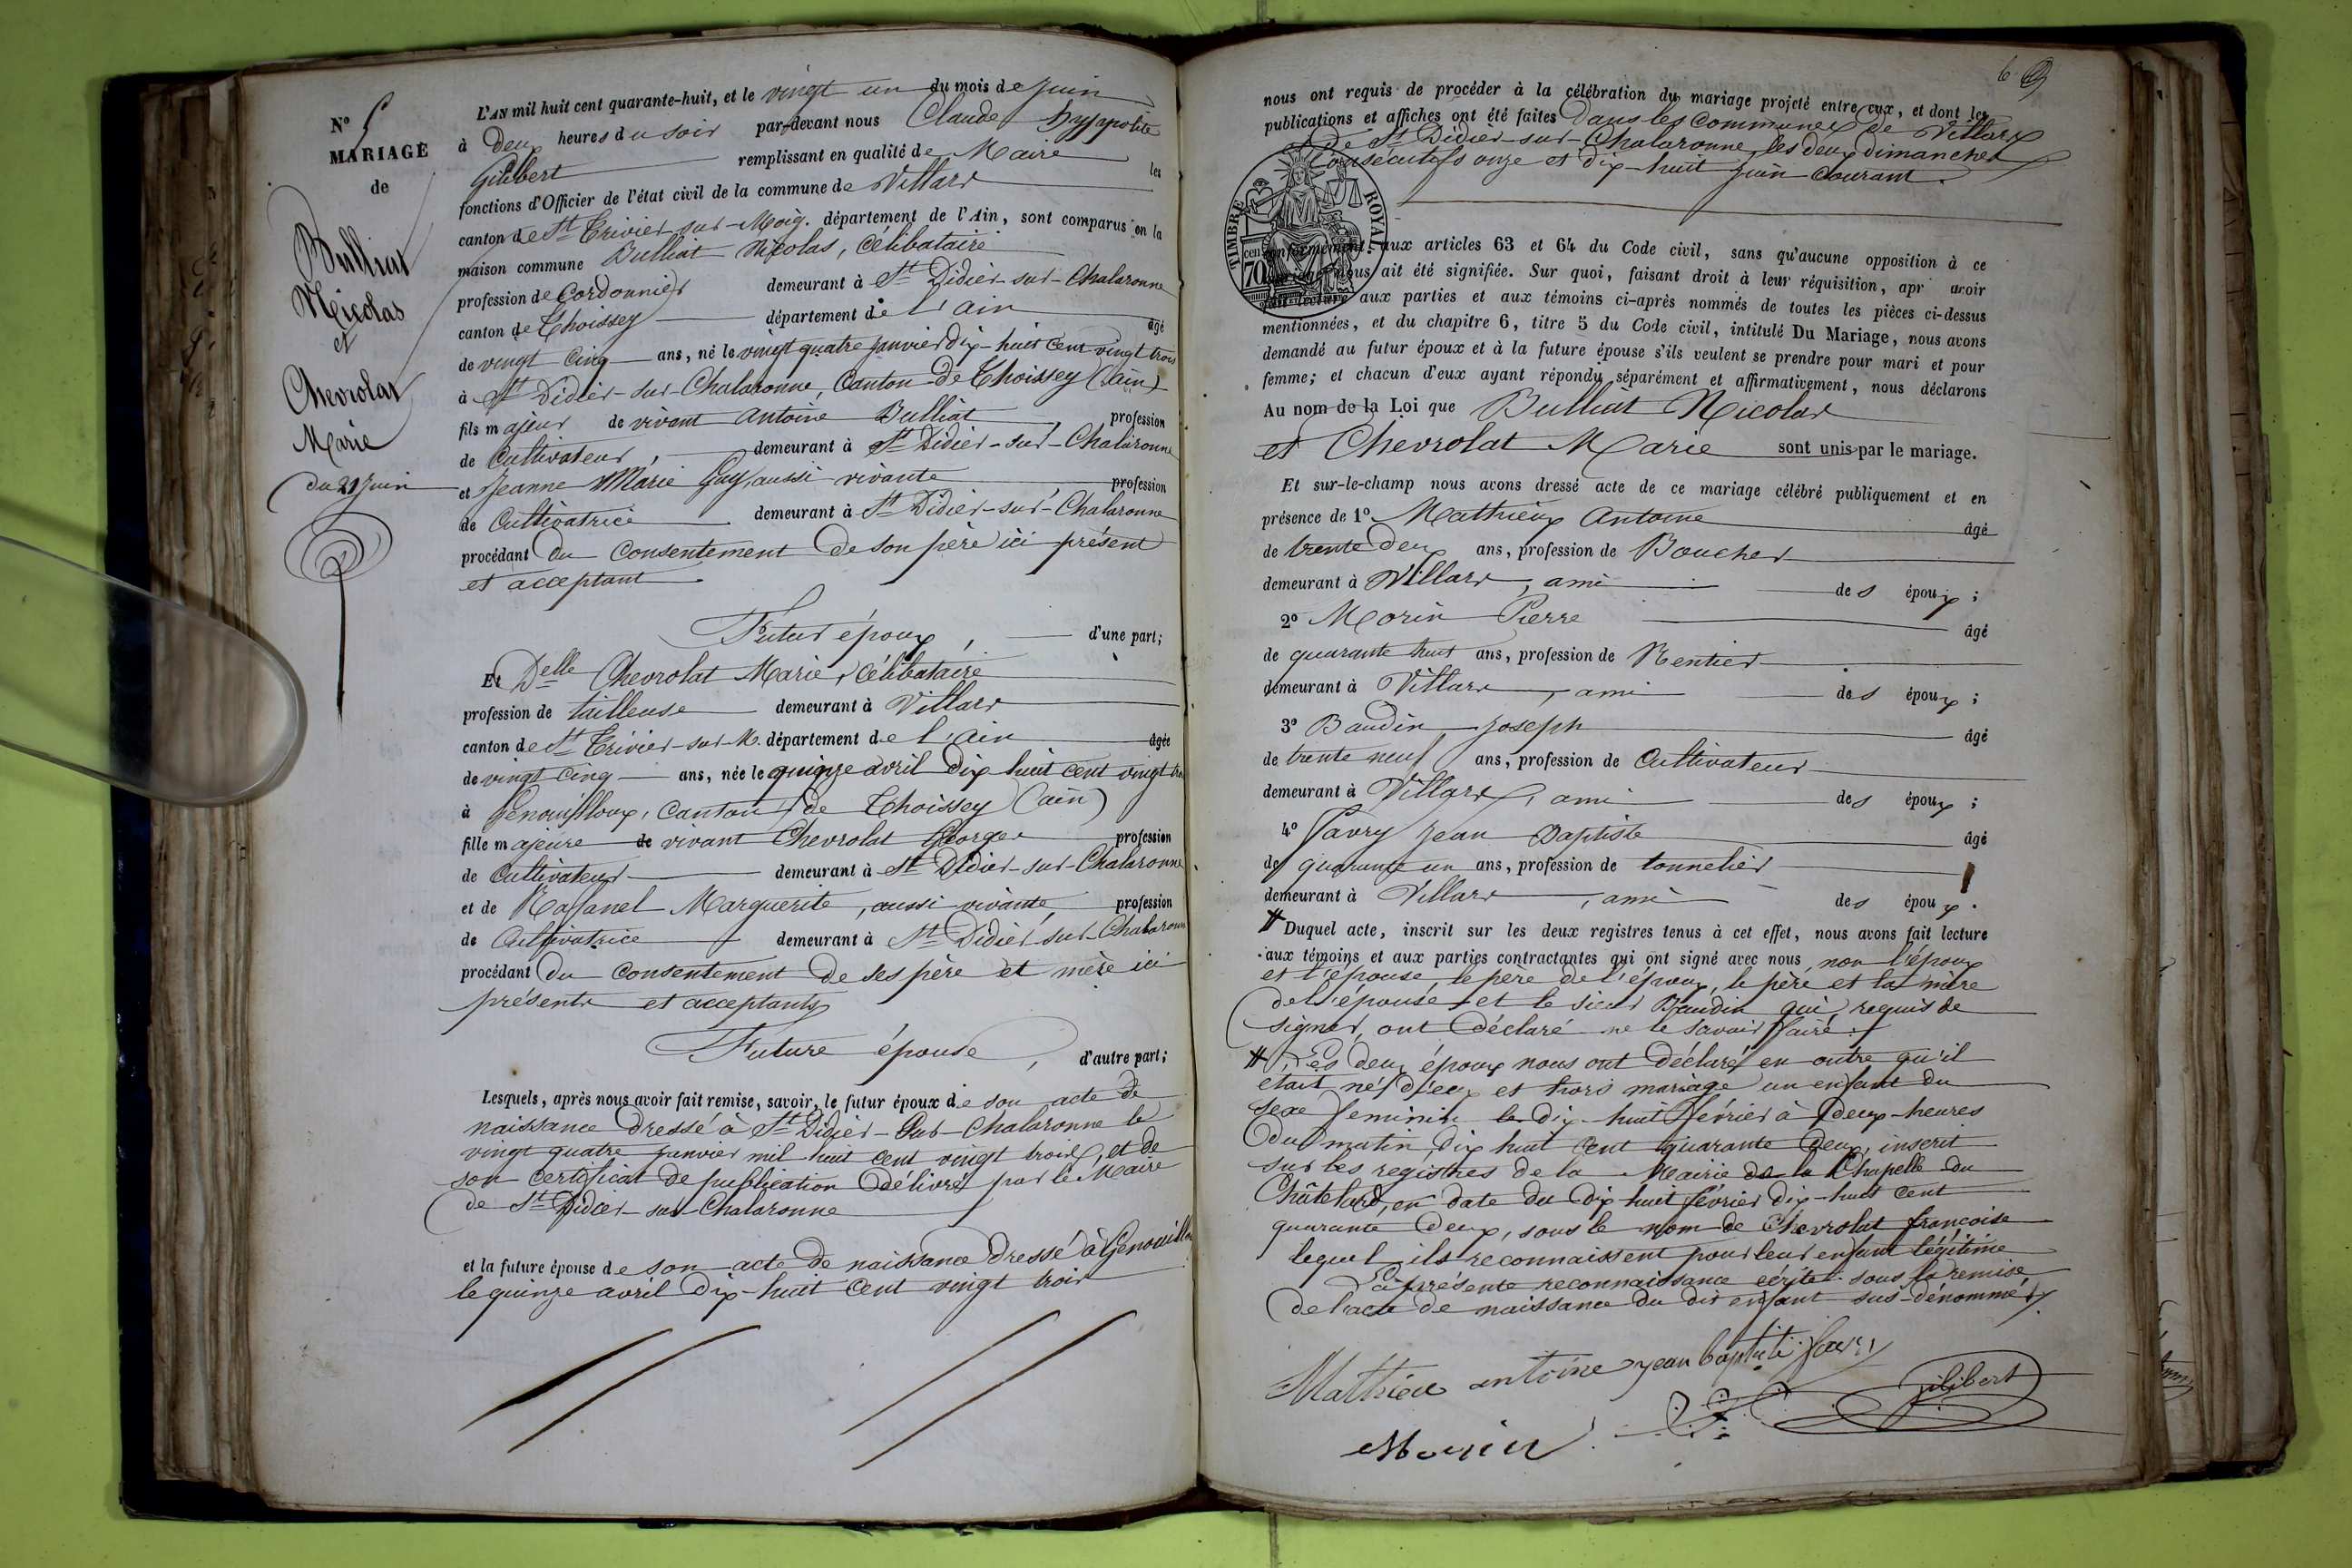 N° 5
MARIAGE
de
Bulliat
Nicolas
et
Chevrolat
Marie
du 21 Juin
L'AN mil huit cent quarante-huit, et le vingt un du mois de Juin
à Deux heures du soir par-devant nous Claude hyppolite
Gilibert remplissant en qualité de Maire les
fonctions d'Officier de l'état civil de la commune de Villars
canton de St Trivier-sur-Moig. département de l'Ain, sont comparus en la
maison commune Bulliat Nicolas, célibataire
profession de Cordonnier demeurant à St Didier-sur-Chalaronne
canton de Thoissey département de l'ain âgé
de vingt cinq ans, né le vingt quatre janvier dix-huit cent vingt trois
à St Didier-sur-Chalaronne, Canton de Thoissey (ain)
fils majeur de vivant Antoine Bulliat, profession
de Cultivateur, demeurant à St Didier-sur-Chalaronne
et Jeanne Marie Guy, aussi vivante, profession
de Cultivatrice demeurant à St Didier-sur-Chalaronne
procédant du consentement de son père ici présent
et acceptant.
Futur époux, d'une part;
Et Delle Chevrolat Marie, célibataire
profession de tailleuse demeurant à Villars
canton de St Trivier-sur-M. département de l'ain âgée
de vingt cinq ans, née le quinze avril dix huit cent vingt
à Genouilleux, canton de Thoissey (ain)
fille majeure de vivant Chevrolat George profession
de Cultivateur demeurant à St Didier-sur-Chalaronne
et de Marguerite, aussi vivante, profession
de Cultivatrice demeurant à St Didier-sur-Chalaronne
procédant du consentement de ses père et mère ici
présents et acceptants
Future épouse, d'autre part;
Lesquels, après nous avoir fait remise, savoir, le futur époux de son acte de
naissance dressé à St Didier-Sur-Chalaronne le
vingt quatre janvier mil huit cent vingt trois, et de
son certificat de publication délivré par le Maire
de St Didier-sur-Chalaronne
et la future épouse de son acte de naissance dressé à Genouilleux
le quinze avril dix-huit cent vingt trois
6
nous ont requis de procéder à la célébration du mariage projeté entre eux, et dont les
publications et affiches ont été faites dans les communes de Villars
De St Didier-sur-Chalaronne, les deux dimanches
Consécutifs onze et dix-huit juin courant.
TIMBRE ROYAL
70 cen
conformément aux articles 63 et 64 du Code civil, sans qu'aucune opposition à ce
mariage nous ait été signifiée. Sur quoi, faisant droit à leur réquisition, apr avoir
fait lecture aux parties et aux témoins ci-après nommés de toutes les pièces ci-dessus
mentionnées, et du chapitre 6, titre 5 du Code civil, intitulé Du Mariage, nous avons
demandé au futur époux et à la future épouse s'ils veulent se prendre pour mari et pour
femme; et chacun d'eux ayant répondu séparément et affirmativement, nous déclarons
Au nom de la Loi que Bulliat Nicolas
et Chevrolat Marie sont unis par le mariage.
Et sur-le-champ nous avons dressé acte de ce mariage célébré publiquement et en
présence de 1° Mathieux Antoine âgé
de trente deux ans, profession de Boucher
demeurant à Villars, ami des époux;
2° Morin Pierre âgé
de quarante huit ans, profession de Rentier
demeurant à Villars, ami des époux;
3° Baudin Joseph âgé
de trente neuf ans, profession de Cultivateur
demeurant à Villars, ami des époux;
4° Favry Jean Baptiste âgé
de quarante un ans, profession de tonnelier
demeurant à Villars, ami des époux.
# Duquel acte, inscrit sur les deux registres tenus à cet effet, nous avons fait lecture
aux témoins et aux parties contractantes qui ont signé avec nous, non l'époux
et l'épouse, le père de l'époux, le père et la mère
de l'épouse et le sieur Baudin qui, requis de
signer, ont déclaré ne le savoir faire.
# Les deux époux nous ont déclaré en outre qu'il
était né d'eux et hors mariage un enfant du
sexe feminin le dix-huit février à deux-heures
du matin dix huit cent quarante deux, inscrit
sur les registres de la Mairie de la Chapelle du
Châtelard, en date du dix huit février dix-huit cent
quarante deux, sous le nom de Chevrolat françoise
lequel ils reconnaissent pour leur enfant légitime
La présente reconnaissance écrite sous la remise
de l'acte de naissance du dit enfant sus-dénommé
Mathieu antoine jean baptiste favri
Gilibert
Morin